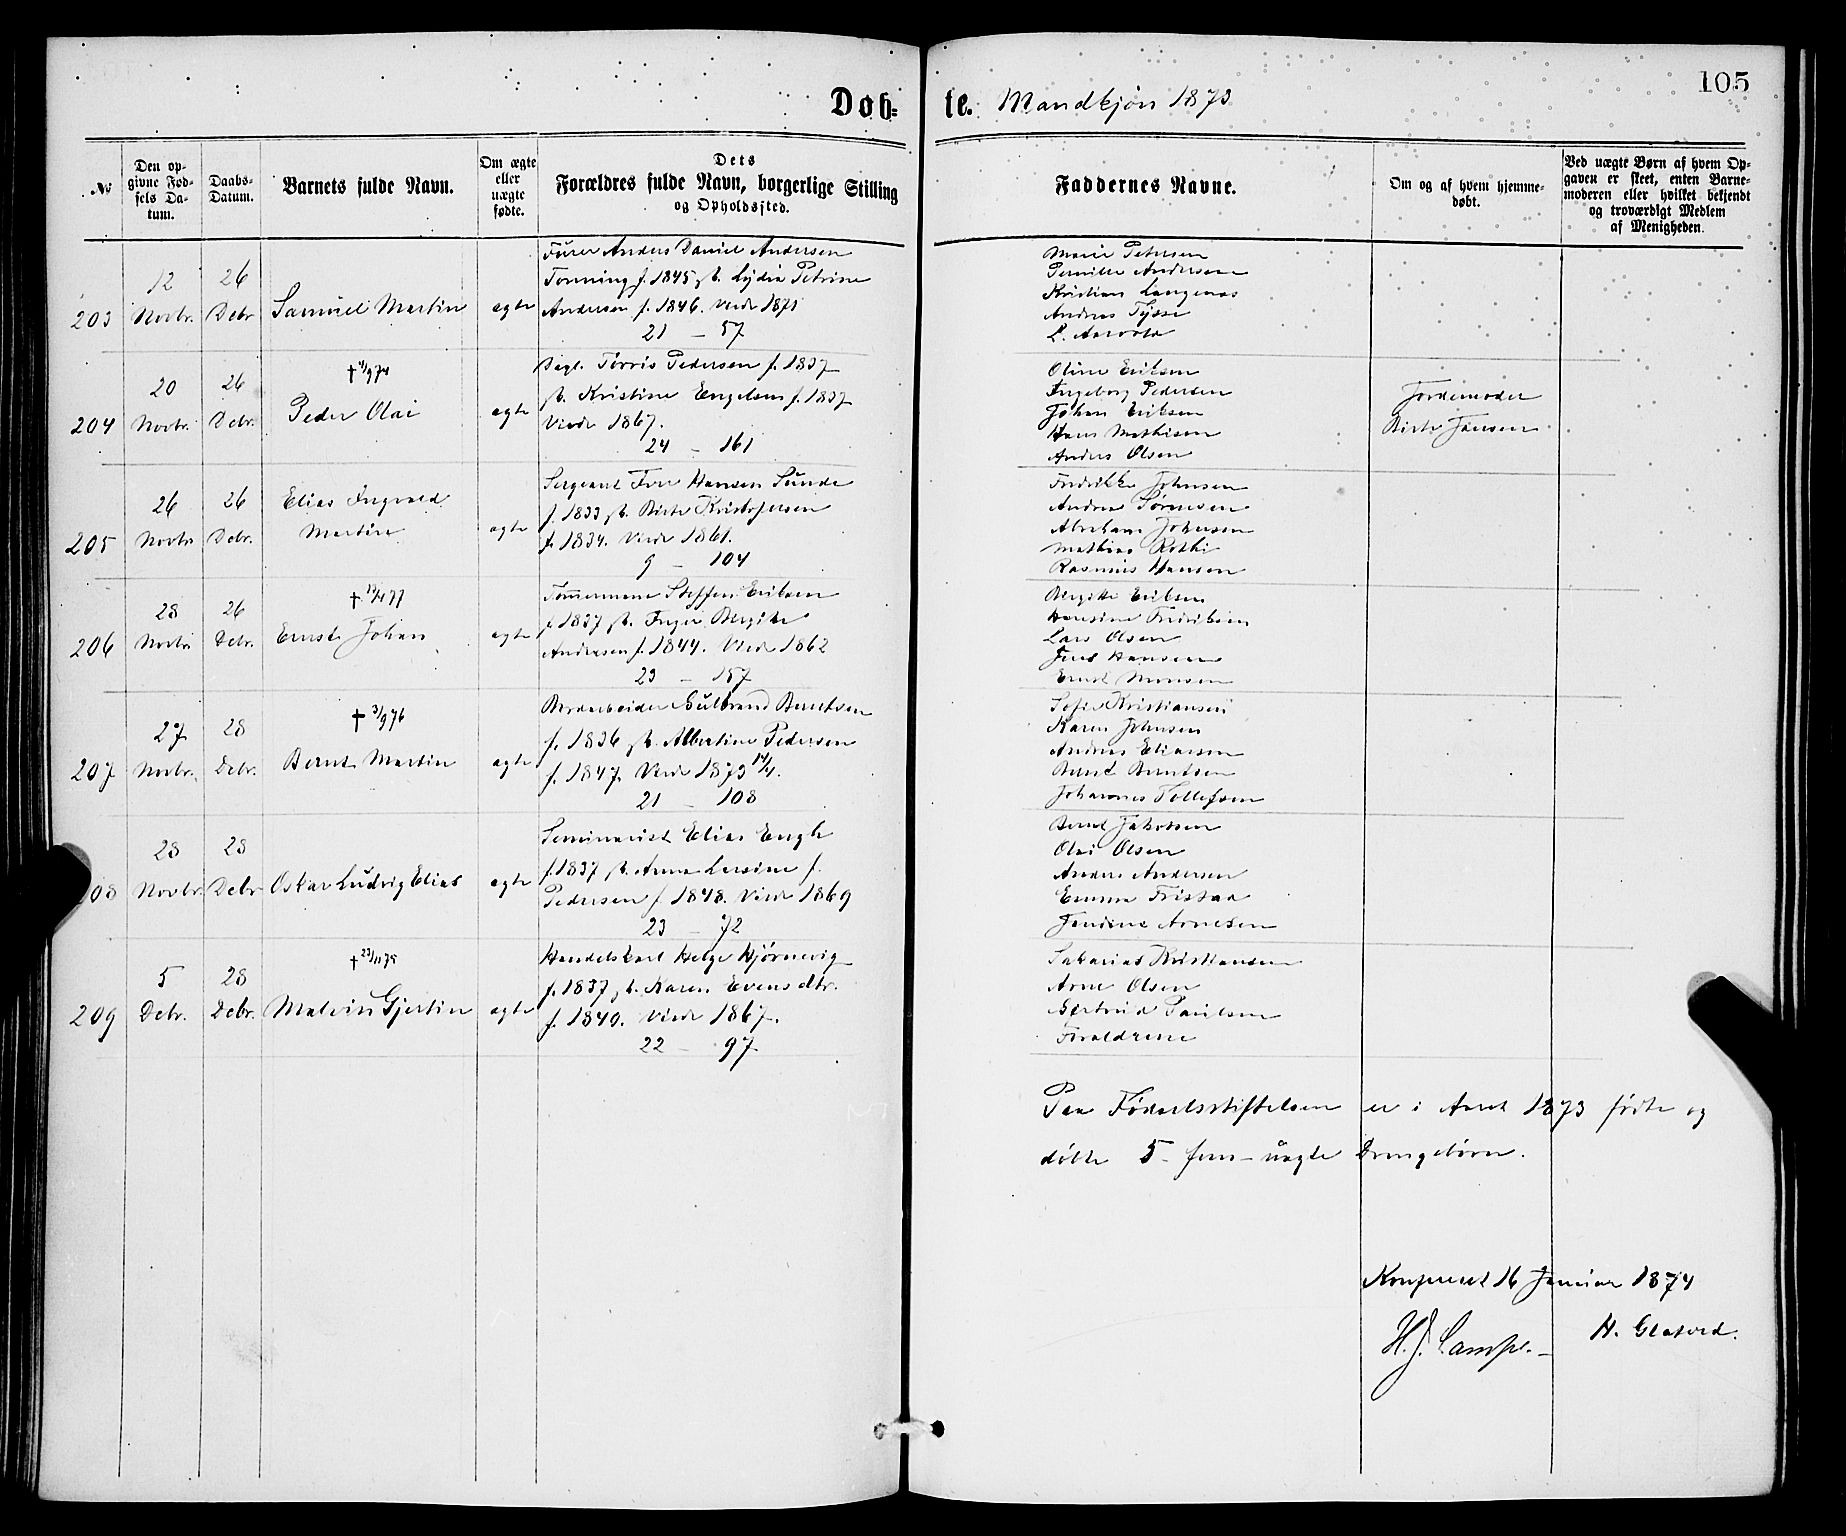 105
Døb- te. Mandkjøn 1873
No
Den op-
givne Fød-
sels Da-
tum.
Daabs-
Datum.
Barnets fulde Navn.
Om ægte
eller
uægte
fødte.
Dets
Forældres fulde Navn, borgerlige Stilling
og Opholdssted.
Faddernes Navne.
Om og af hvem hjemme-
døbt.
Ved uægte Børn af hvem Op-
gaven er skeet, enten Barne-
moderen eller hvilket bekjendt
og troværdigt Medlem
af Menigheden.
203
12
Novbr.
26
Debr
Samuel Martin
ægte
Furer Anders Daniel Andersen
Tonning f. 1845 & h. Lydia Petrine
Andersen f. 1846. Viede 1871
21 - 57
Marie Petersen
Pernille Andersen
Kristian Langenes
Andreas Tysse
204
20
Novbr.
26
Debr.
Peder Olai
ægte
Tørris Pedersen f. 1837
Kristine Engelsen f. 1837
Viede 1867.
24 - 161
Oline Eriksen
Ingeborg Pedersen
Johan Eriksen
Hans Mathisen
Anders Olsen
Jordemoder
Birte Jansen
205
26
Novbr
26
Debr.
Elias Ingvald
Martin
ægte
Sergeant Iver Hansen Sunde
f. 1833 Birte Kristofersen
f. 1834. Viede 1861.
9 - 104
Fredrikke Johnsen
Andrea Sørensen
Abraham Johnsen
Mathias Rothi
Rasmus Hansen
206
28
Novbr
26
Debr.
Ernst Johan
ægte
Tømmermand Steffen Eriksen
f. 1837 Inger Birgitte
Andersen f. 1844. Viede 1862
23 - 157
Birgitte Eriksen
Hansine Fredriksen
Lars Olsen
Jens Hansen
Ernst Monsen
207
27
Novbr.
28
Debr.
† 3/9 76
Bernt Martin
ægte
Gulbrand Berntsen
f. 1836 Albertine Pedersen
f. 1847. Viede 1873 14/4.
21 - 108
Sofie Kristiansen
Karen Johnsen
Andreas Eliassen
Bernt Berntsen
Johannes Tollefsen
08
28
Novbr.
28
Debr
Oskar Ludvig Elias
ægte
Seminarist Elias Engh
f. 1837 Anna Larsine f.
Pedersen f. 1848. Viede 1869
23 - 72
Bernt Jakobsen
Olai Olsen
Anders Andersen
Emma Fristad
Jandine Arnesen
209
5
Debr.
28
Debr.
Malvin Gjertin
ægte
Handelskarl Helge Hjørnevig
f. 1837 Karen Evensdtr.
f. 1840. Viede 1867.
22 - 97
Sakarias Kristiansen
Arne Olsen
Gertrud Paulsen
Forældrene
Paa Fødselsstiftelsen er i Aaret 1873 fødte og
døbte 5 - fem - uægte Drengebørn.
Konfereret 16 Januar 1874
H. J. Lampe.